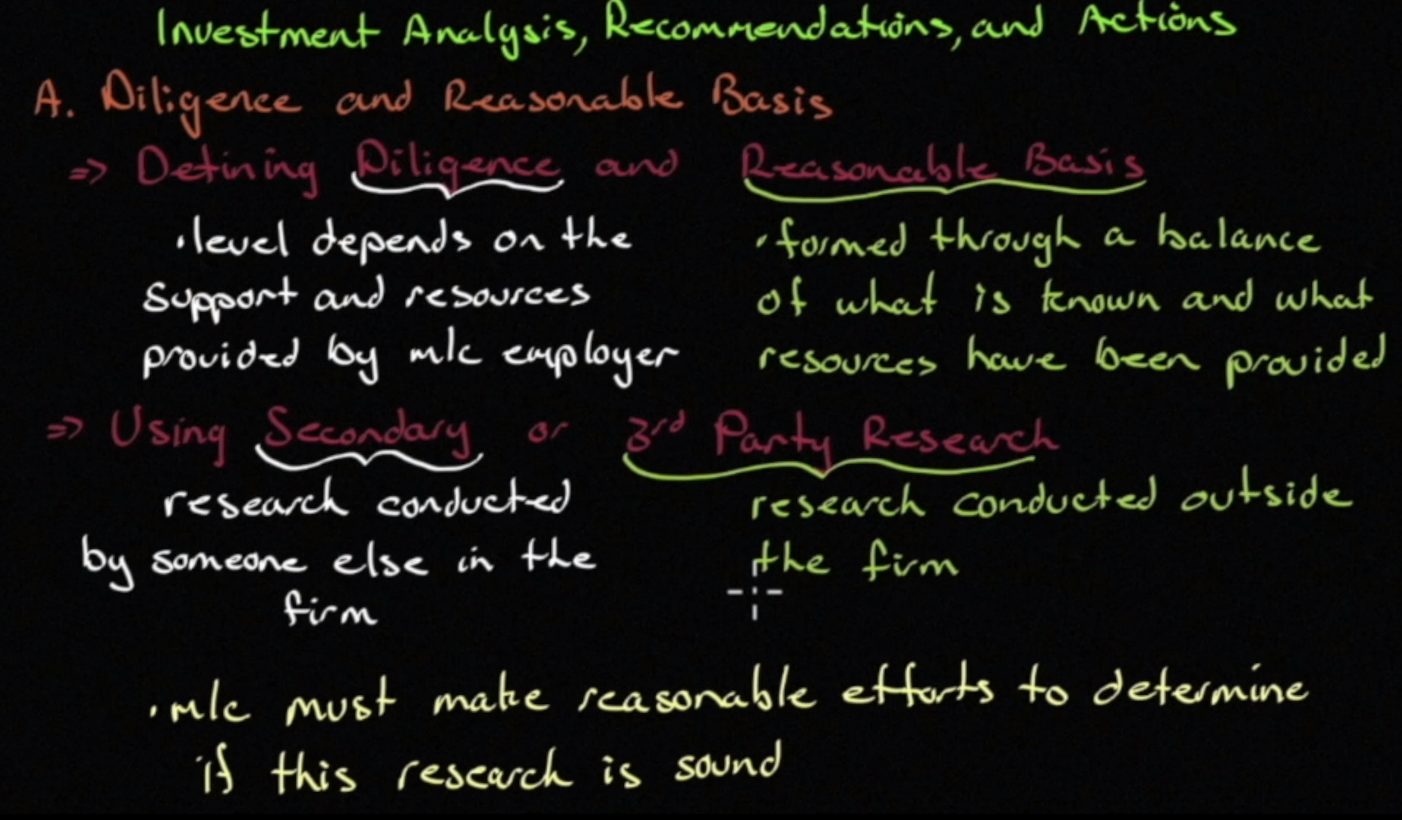 Investment Analysis, Recommendations, and Actions
A. Diligence and Reasonable Basis
=> Defining Diligence and Reasonable Basis
• level depends on the
support and resources
provided by m/c employer
• formed through a balance
of what is known and what
resources have been provided
=> Using Secondary or 3rd Party Research
research conducted
by someone else in the
firm
research conducted outside
the firm
• m/c must make reasonable efforts to determine
if this research is sound